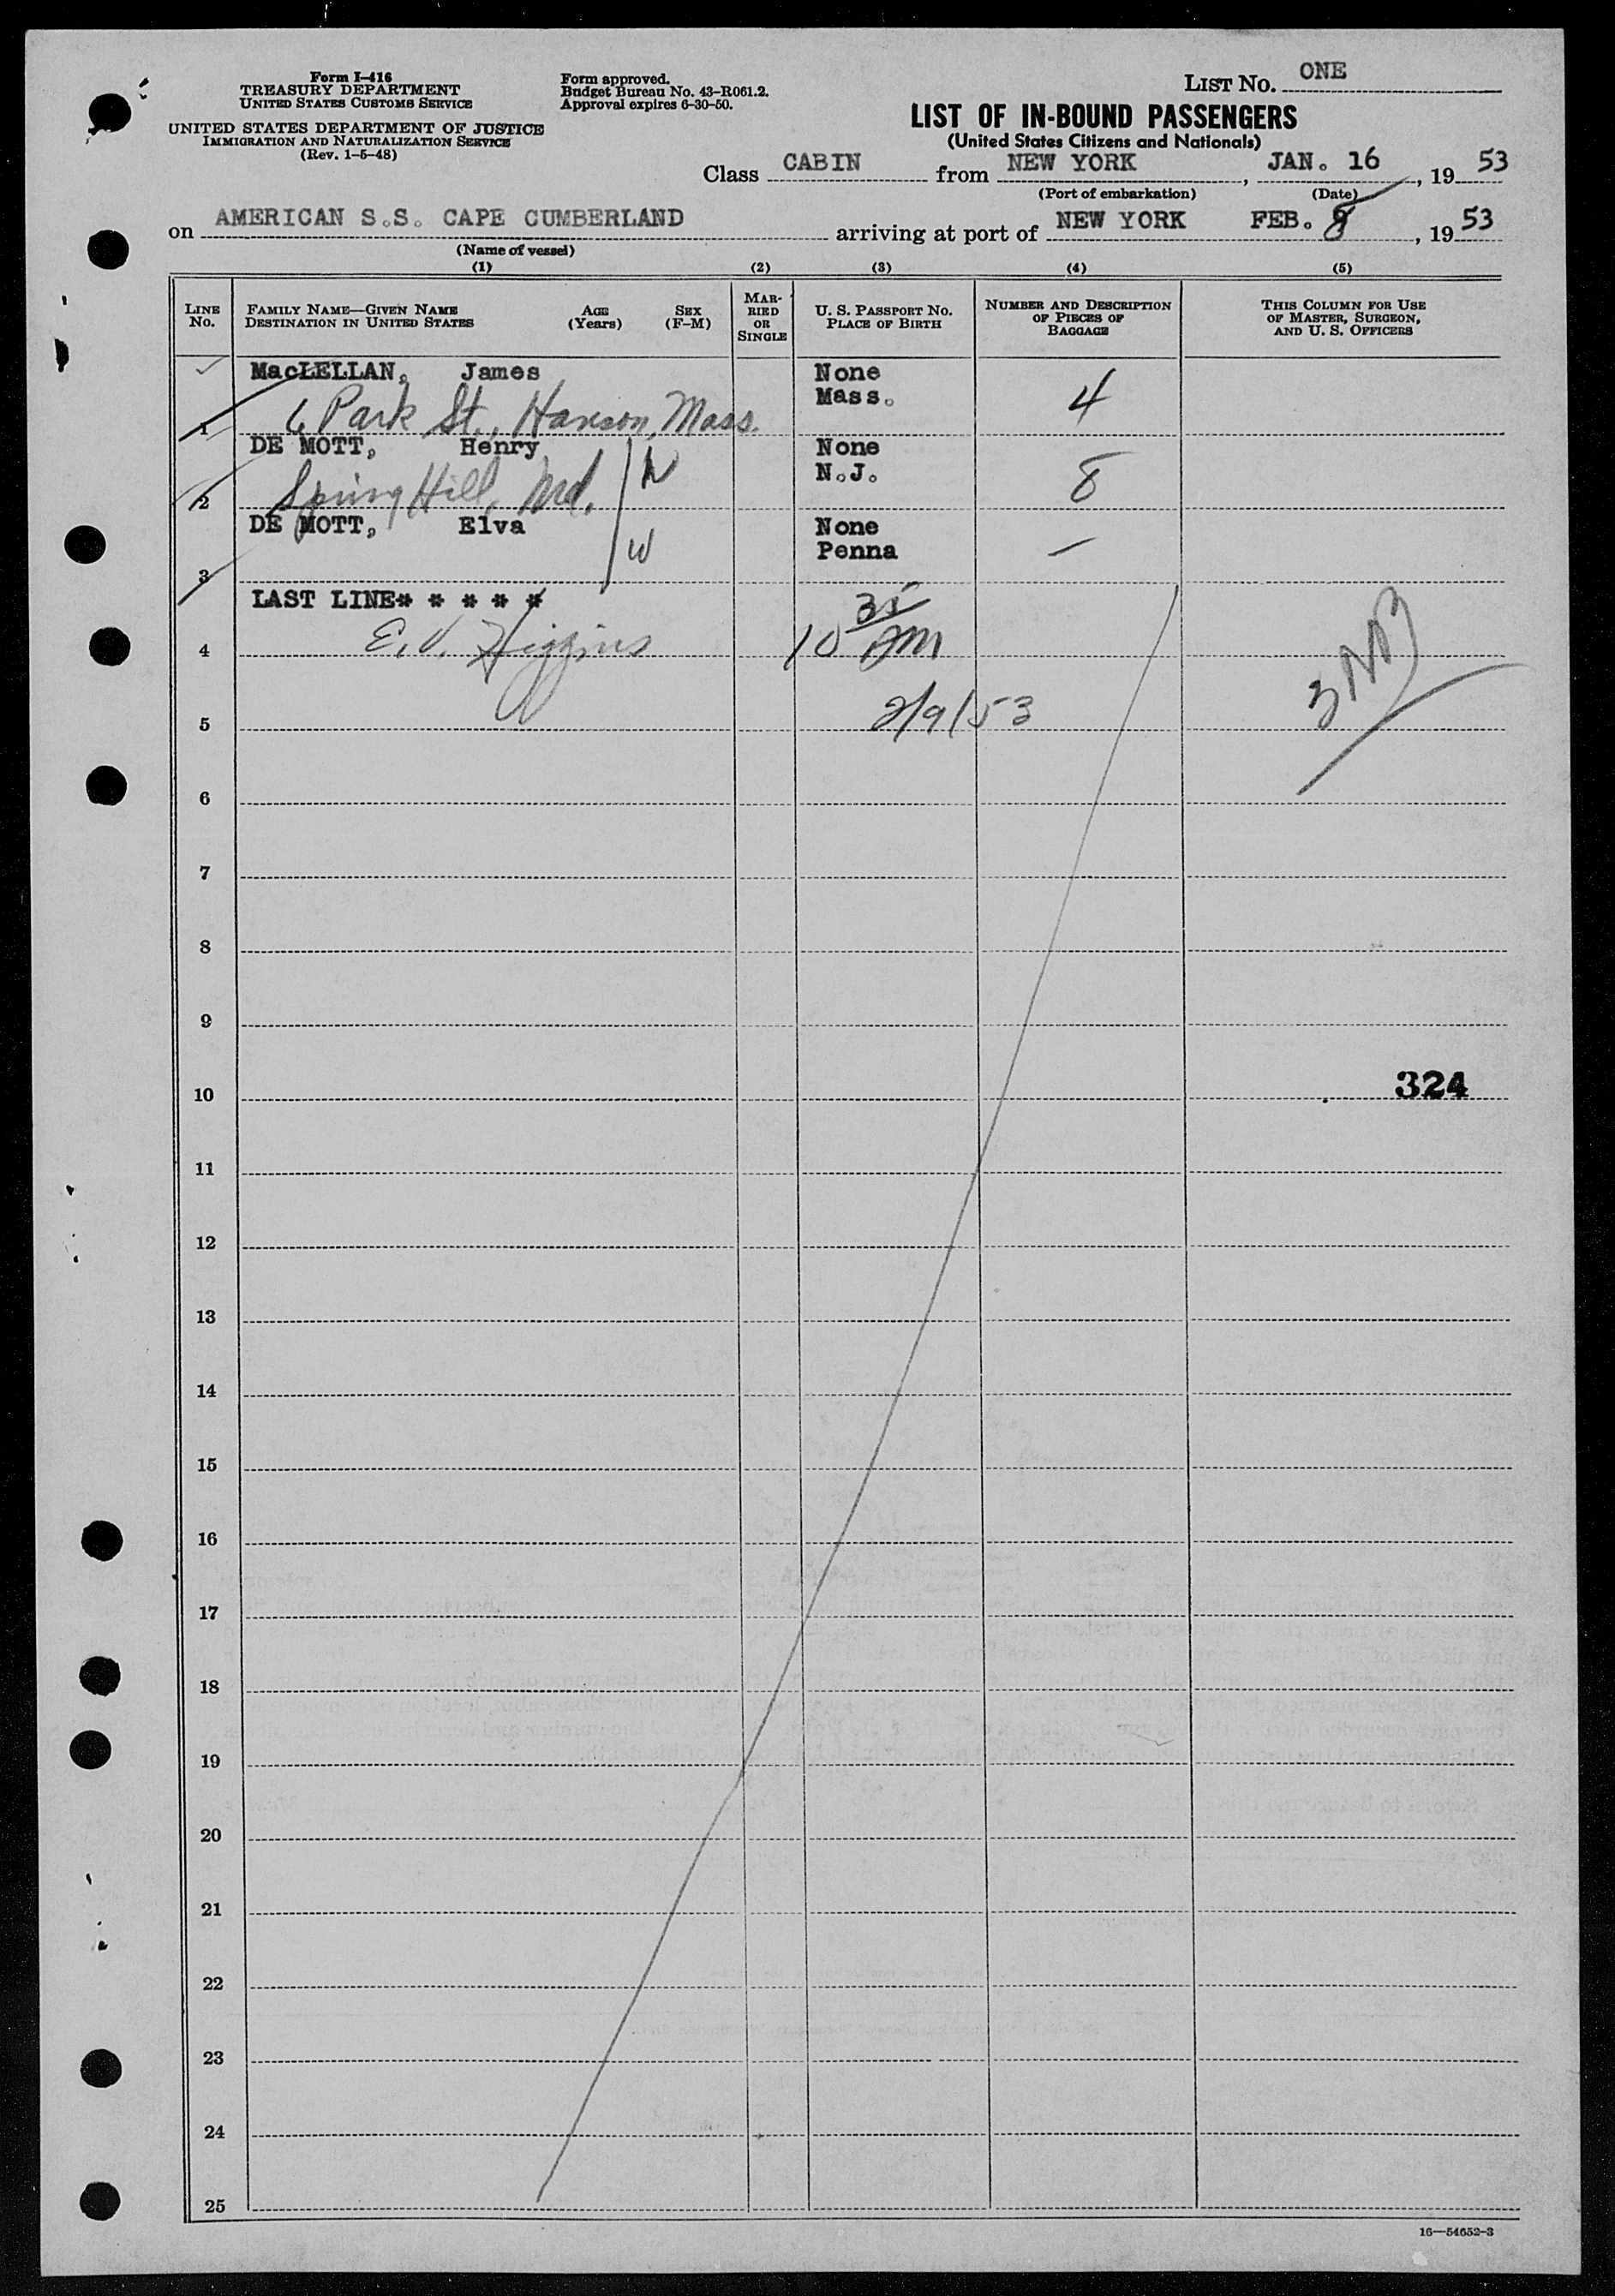 Form I-416
TREASURY DEPARTMENT
UNITED STATES CUSTOMS SERVICE
UNITED STATES DEPARTMENT OF JUSTICE
IMMIGRATION AND NATURALIZATION SERVICE
(Rev. 1-5-48)
Form approved.
Budget Bureau No. 43-R061.2.
Approval expires 6-30-50.
LIST No. ONE
LIST OF IN-BOUND PASSENGERS
(United States Citizens and Nationals)
Class CABIN from NEW YORK, JAN. 16, 1953
(Port of embarkation) (Date)
on AMERICAN S.S. CAPE CUMBERLAND arriving at port of NEW YORK FEB. 8, 1953
(Name of vessel)
(1) (2) (3) (4) (5)
LINE No. FAMILY NAME—GIVEN NAME DESTINATION IN UNITED STATES AGE (Years) SEX (F-M) MARRIED OR SINGLE U. S. PASSPORT No. PLACE OF BIRTH NUMBER AND DESCRIPTION OF PIECES OF BAGGAGE THIS COLUMN FOR USE OF MASTER, SURGEON, AND U. S. OFFICERS
MacLELLAN, James None
1 6 Park St., Hanson, Mass. Mass. 4
DE MOTT, Henry None
2 Spring Hill, Md. N.J. 8
DE MOTT, Elva W None
3 Penna —
LAST LINE* * * * *
4 E. V. Higgins 10 35 AM
5 2/9/53
6
7
8
9
10 324
11
12
13
14
15
16
17
18
19
20
21
22
23
24
25
16—54652-3